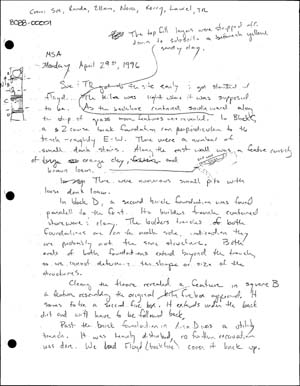 Crew: SM, Linda, Ellen, Nora, Kerry, Laurel, TR
8088-00001
The top fill layers were stripped off
down to subsoil a yellow
sandy clay.
MSA
Monday April 29th, 1996
Sue & TR got to the site early & got started
Floyd. The kiln was right where it was supposed
to be. As the backhoe continued southward along
the strip of grass more features were revealed. In Block
a 2 course brick foundation ran perpendicular to the
trench - roughly E-W. There were a number of
small dark stains. Along the east wall was a feature consisting
of orange clay, and
brown loam.
There were numerous small pits with
loose dark loam.
In block D, a second brick foundation was found
parallel to the first. Its builders trench contained
stoneware & clay. The builders trenches of both
foundations are on the inside, indicating they
are probably not the same structure. Both
ends of both foundations extend beyond the trench,
so we cannot determine the shape or size of the
structures.
Cleaning the floors revealed a feature in square B
a feature resembling the original kiln firebox appeared. It
seems to be a second fire box. It extends under the back
dirt and will have to be followed back.
Past the brick foundation in was a utility
trench. It was heavily disturbed, no further excavation
was done. We had Floyd (backhoe) cover it back up.